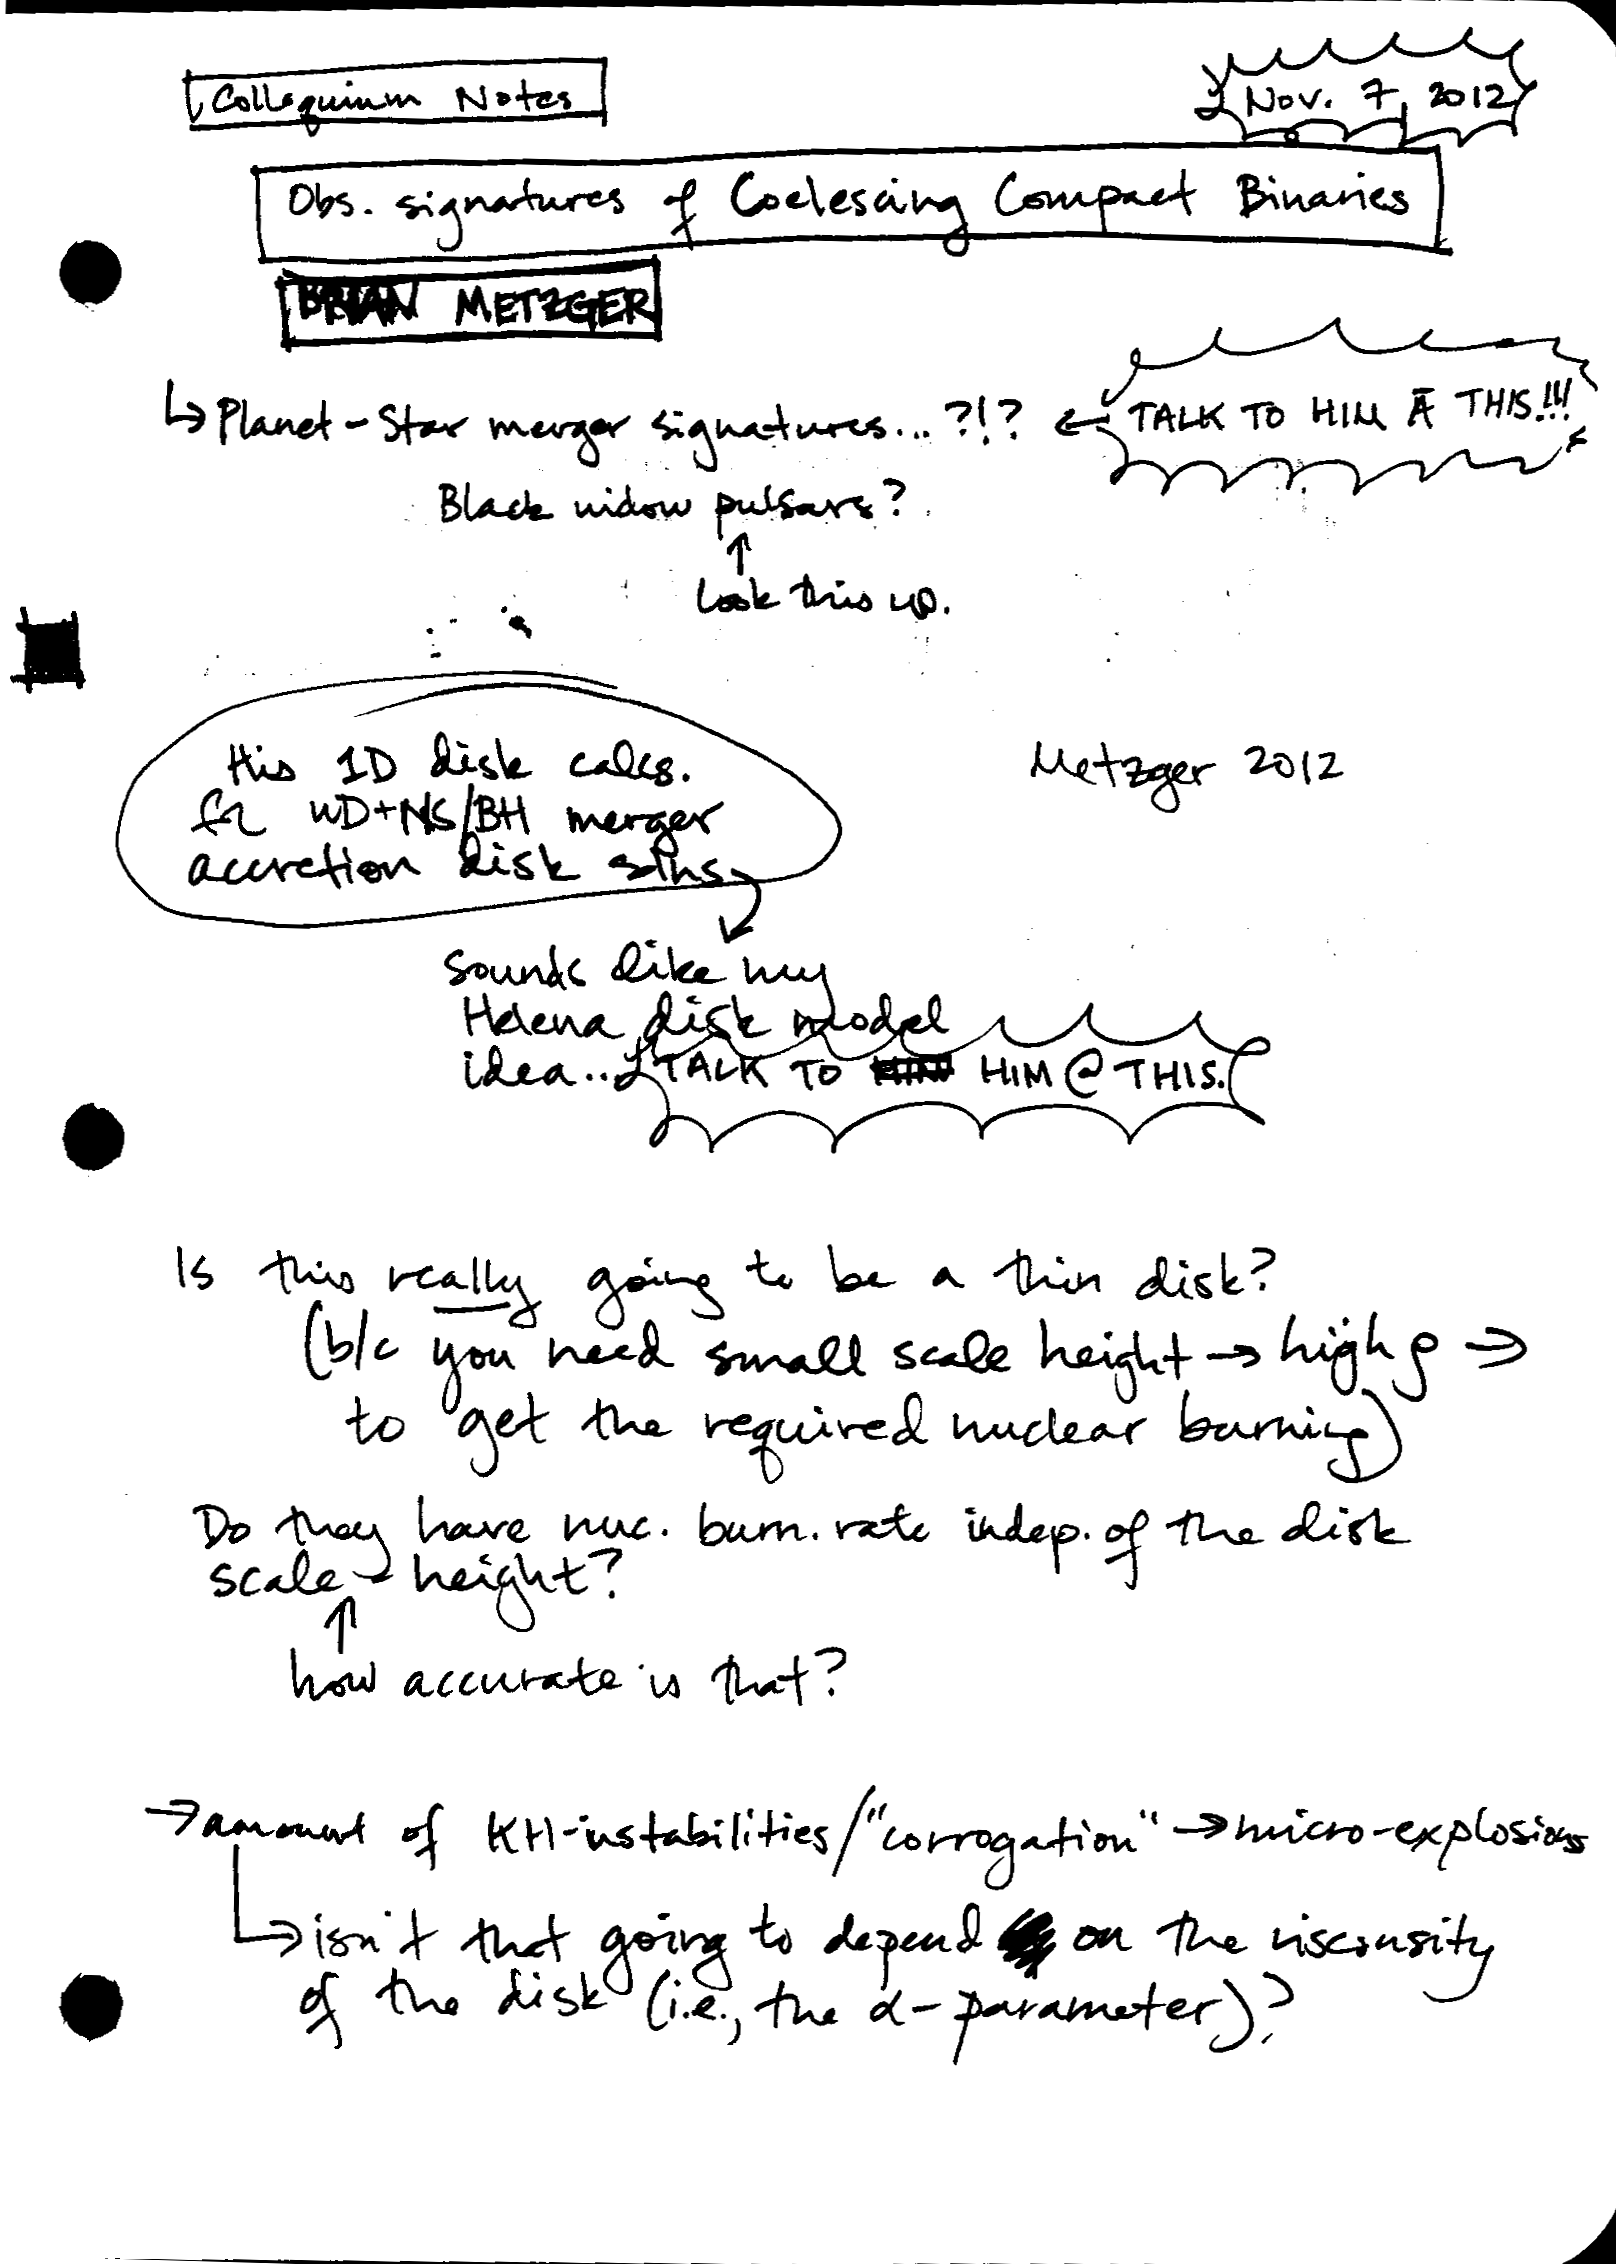 Colloquium Notes
Nov. 7, 2012
Obs. signatures of Coelescing Compact Binaries
BRIAN METZGER
↳ Planet-Star merger signatures...?!? ← TALK TO HIM Ā THIS!!!
Black widow pulsars?
↑
Look this up.
His 1D disk calcs.
for WD+NS/BH merger
accretion disk sims
Metzger 2012
sounds like my
Helena disk model
idea... TALK TO HIM @ THIS.
Is this really going to be a thin disk?
(b/c you need small scale height → high ρ →
to get the required nuclear burning)
Do they have nuc. burn. rate indep. of the disk
scale-height?
↑
how accurate is that?
→ amount of KH-instabilities/"corrogation" → micro-explosions
↳ isn't that going to depend on the viscousity
of the disk (i.e., the α-parameter)?